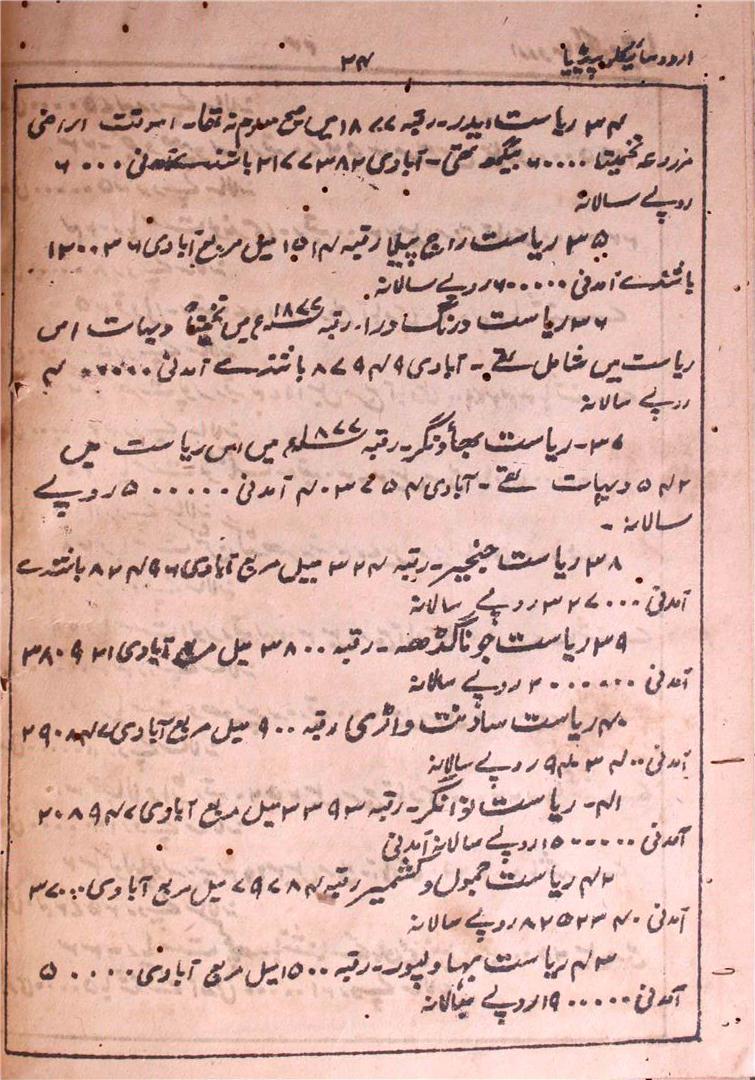 اردو سائیکلو پیڈیا ۳۴
۳۴ ریاست ایدر۔ رقبہ ۱۸۷۷ میں صحیح معلوم نہ تھا۔ اسوقت اراضی
مزروعہ تخمیناً ۶۰۰۰۰ بیگھہ تھی۔ آبادی ۲۱۷۷۳۸۲ باشندے آمدنی ۶۰۰۰
روپے سالانہ
۳۵ ریاست راج پیپلا رقبہ ۱۵۱۴ میل مربع آبادی ۱۲۰۰۳۶
باشندے آمدنی ۶۰۰۰۰۰ روپے سالانہ
۳۶ ریاست رقبہ ۱۸۷۷ء میں تخمیناً دیہات اس
ریاست میں شامل تھے۔ آبادی ۸۷۹۴۹ باشندے آمدنی ۴۰۰۰۰۰
روپے سالانہ
۳۷۔ ریاست بھاؤنگر۔ رقبہ ۱۸۷۷ء میں اس ریاست میں
۵۴۲ دیہات تھے۔ آبادی ۴۰۳۷۵۴ آمدنی ۵۰۰۰۰۰ روپے
سالانہ۔
۳۸ ریاست جنجیر۔ رقبہ ۳۲۴ میل مربع آبادی ۸۲۴۹۶ باشندے
آمدنی ۳۲۷۰۰۰ روپے سالانہ
۳۹ ریاست جوناگڈھہ۔ رقبہ ۳۸۰۰ میل مربع آبادی ۳۸۰۹۲۱
آمدنی ۲۰۰۰۰۰۰ روپے سالانہ
۴۰ ریاست ساونت واڑی رقبہ ۹۰۰ میل مربع آبادی ۲۹۰۸۴۷
آمدنی ۹۴۳۴۰۰ روپے سالانہ
۴۱۔ ریاست نوانگر۔ رقبہ ۳۳۹۳ میل مربع آبادی ۲۰۸۹۴۷
آمدنی ۱۵۰۰۰۰۰ روپے سالانہ آمدنی
۴۲ ریاست جموں و کشمیر رقبہ ۷۹۷۸۴ میل مربع آبادی ۳۷۰۰۰
آمدنی ۸۲۵۲۳۰۴۰ روپے سالانہ
۴۳ ریاست بہاولپور۔ رقبہ ۱۵۰۰ میل مربع آبادی ۵۰۰۰۰
آمدنی ۱۹۰۰۰۰۰ روپے سالانہ